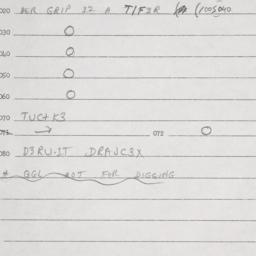 020 DER GRIP IZ A T/FZR (100S040
030 O
040 O
050 O
060 O
070 TUC+K3
071 → 072 O
080 D3RU-IT DRAJC3X
* QGL NOT FOR DIGGING